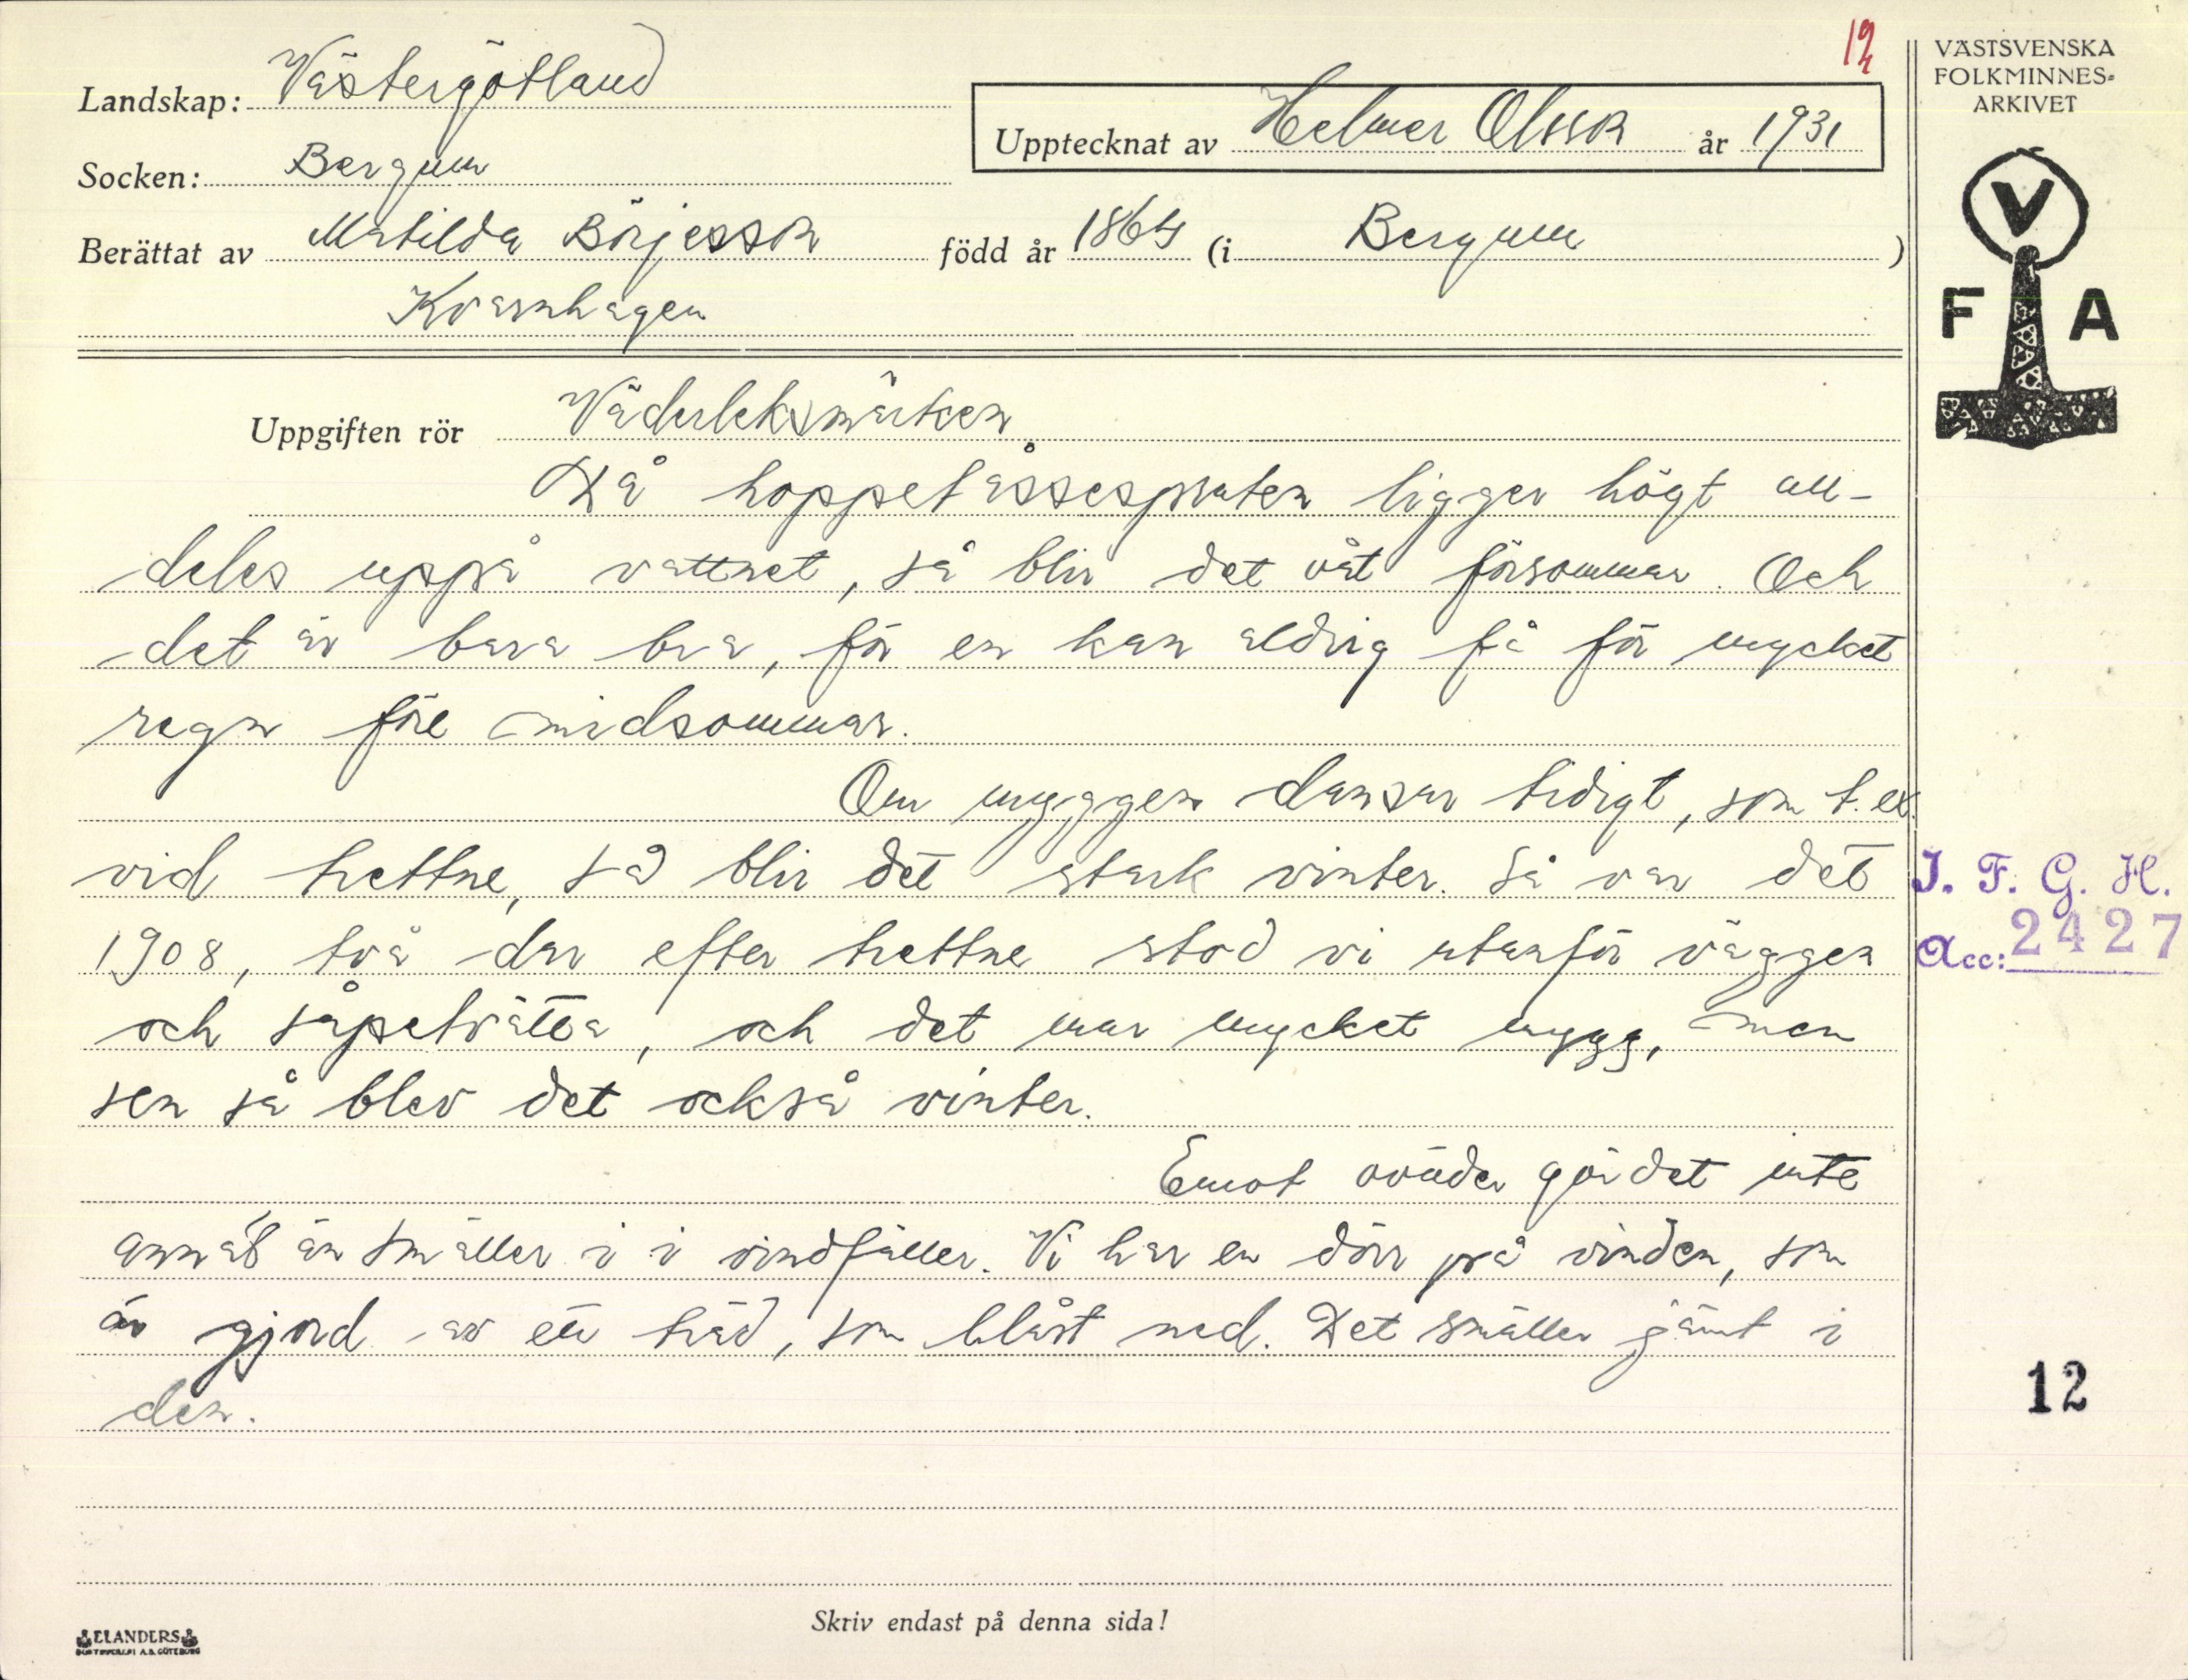 12
VÄSTSVENSKA
FOLKMINNES-
ARKIVET
V
F A
Landskap: Västergötland
Upptecknat av Helmer Olsson år 1931
Socken: Bergum
Berättat av Matilda Börjesson född år 1864 (i Bergum)
Kvarnhagen
Uppgiften rör Väderleksmärken
Då hoppetåssespraten ligger högt all-
deles uppå vattnet, så blir det våt försommar. Och
det är bara bra, för en kan aldrig få för mycket
regn före midsommar.
Om myggen dansar tidigt, som t. ex.
vid trettne, så blir det stark vinter. Så var det
1908, två dar efter trettne stod vi utanför väggen
och såpetvätta, och det var mycket mygg, men
sen så blev det också vinter.
Emot oväder gör det inte
annat än smäller i i vindfäller. Vi har en dörr på vinden, som
är gjord av ett träd, som blåst ned. Det smäller jämt i
den.
I. F. G. H.
Acc: 2427
12
Skriv endast på denna sida!
ELANDERS
BOKTRYCKERI A.B. GÖTEBORG